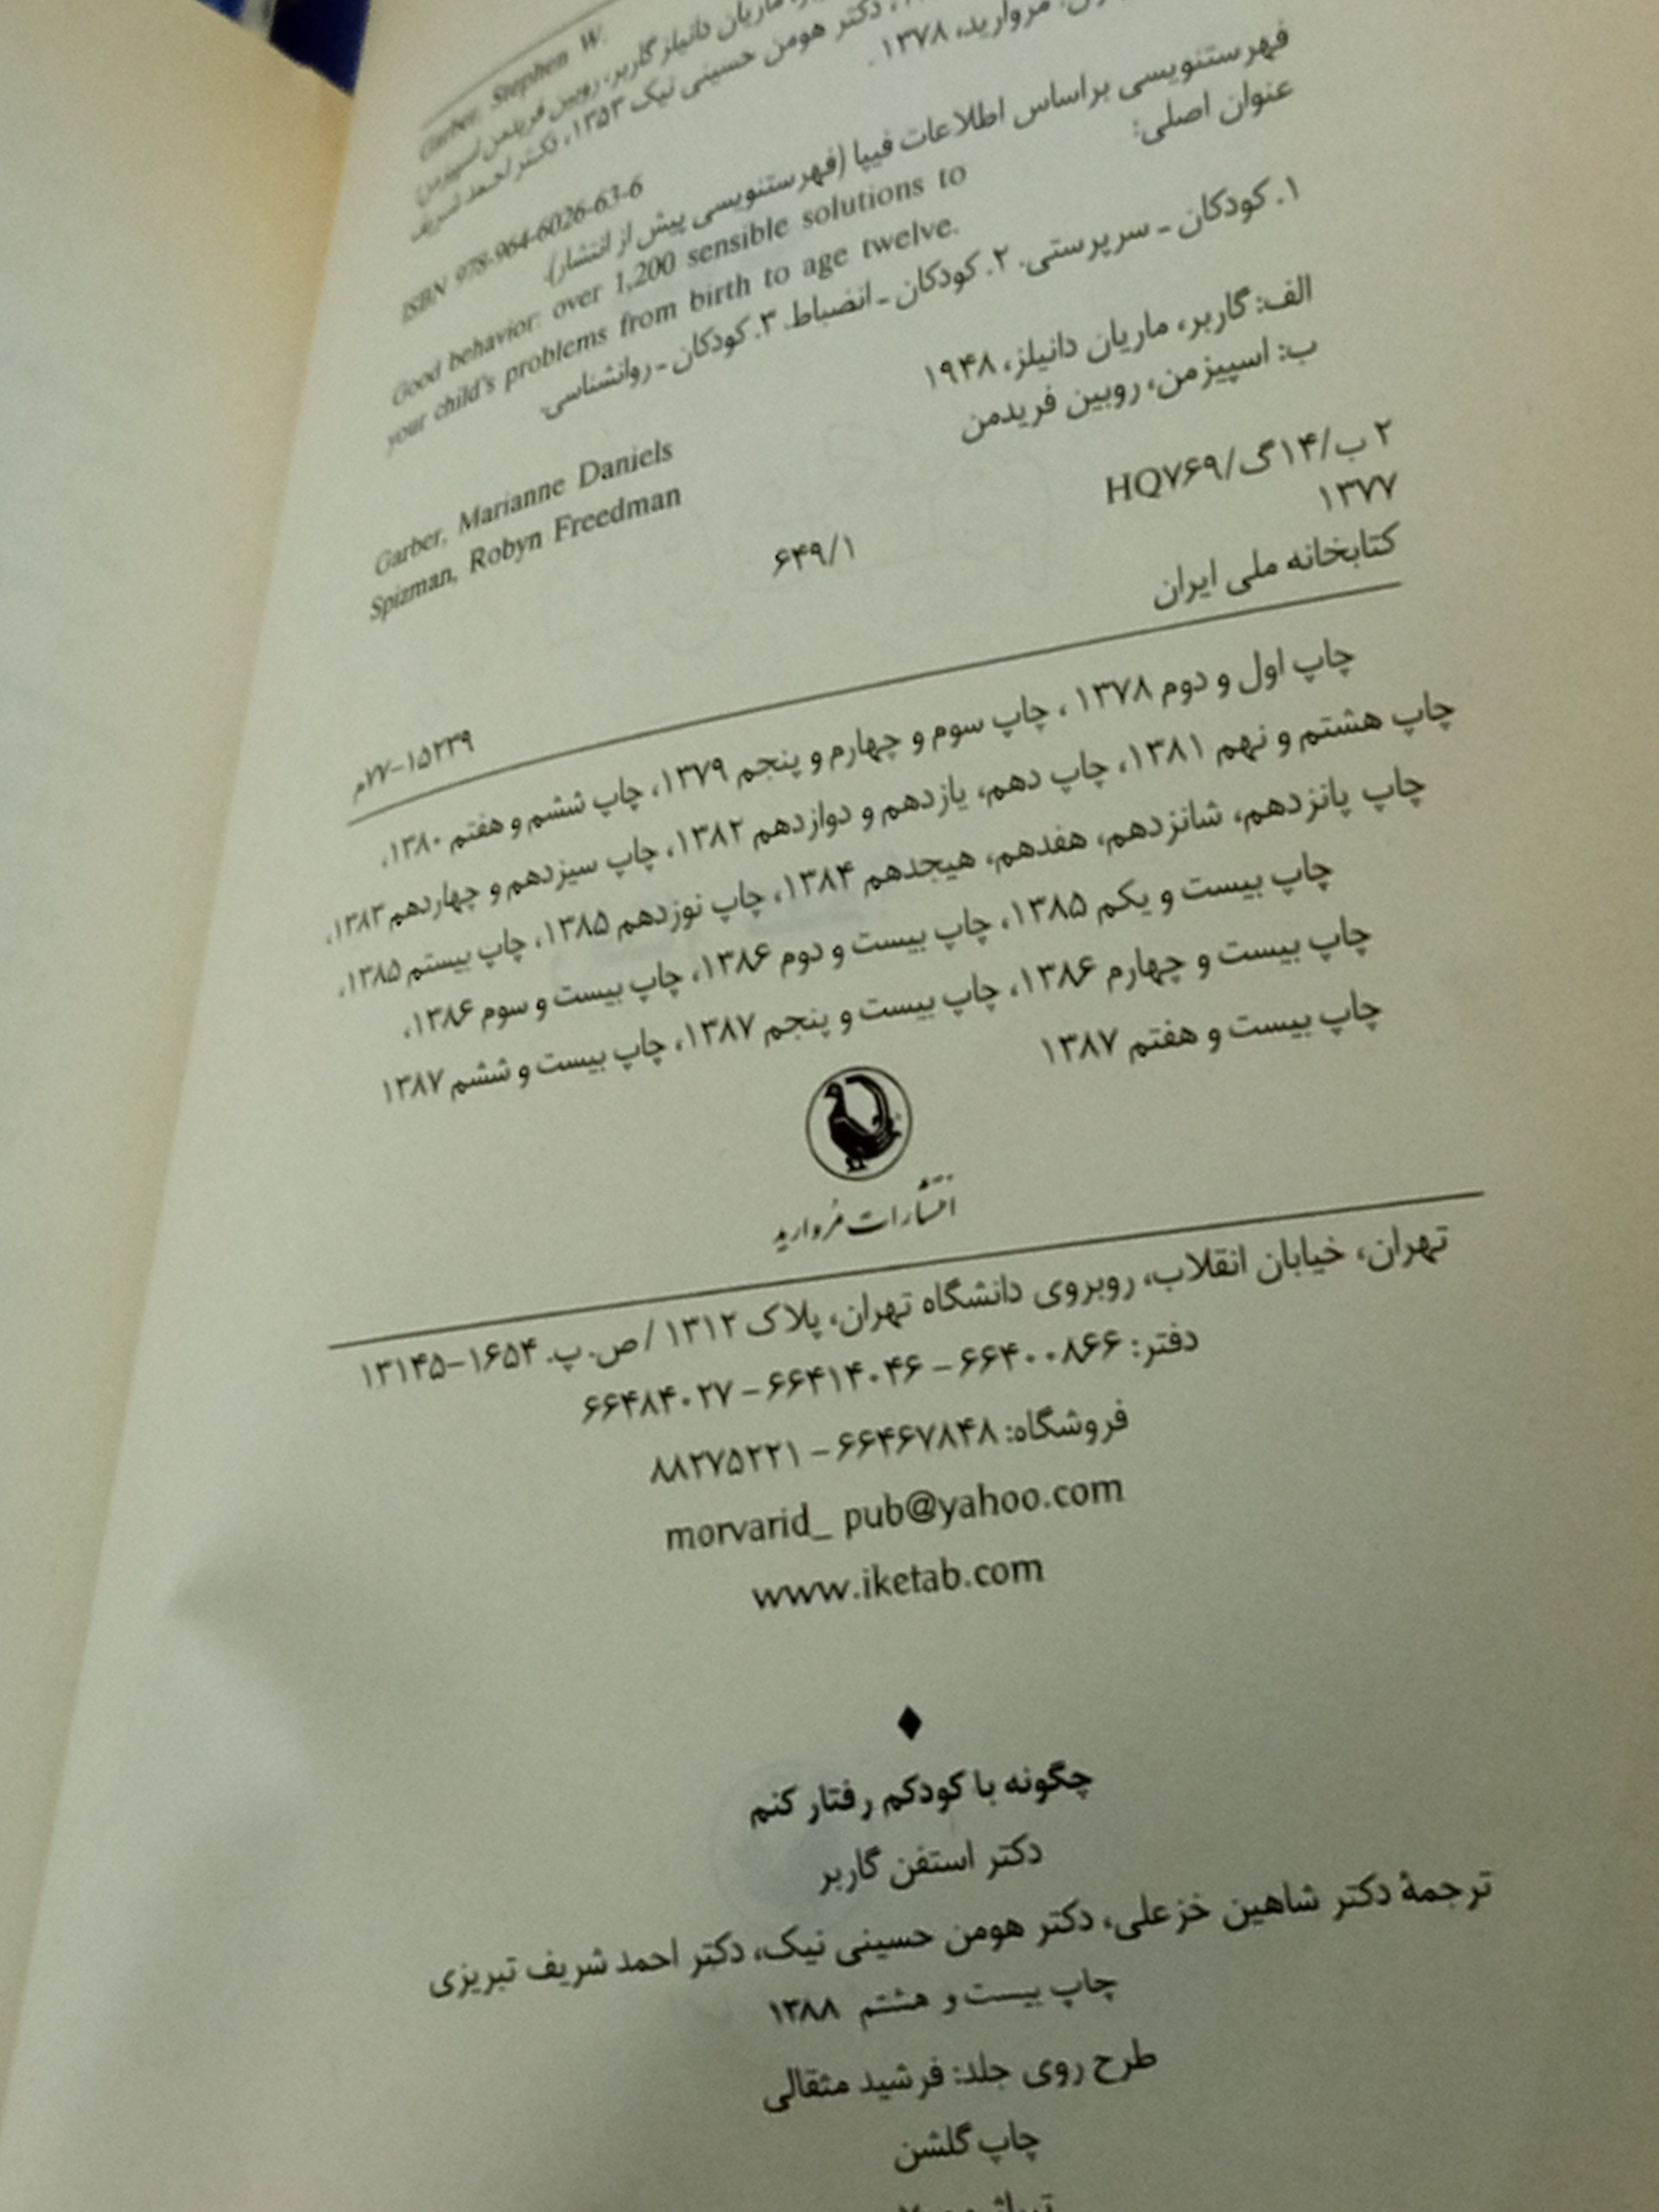 Garber, Stephen W.
ماریان دانیلز گاربر، روبین فریدمن اسپیزمن
دکتر هومن حسینی نیک ۱۳۵۳، دکتر احمد شریف
مروارید، ۱۳۷۸.
ISBN 978-964-6026-63-6
فهرستنویسی براساس اطلاعات فیپا (فهرستنویسی پیش از انتشار).
عنوان اصلی:
Good behavior: over 1,200 sensible solutions to
your child's problems from birth to age twelve.
۱. کودکان ـ سرپرستی. ۲. کودکان ـ انضباط. ۳. کودکان ـ روانشناسی.
الف: گاربر، ماریان دانیلز، ۱۹۴۸
Garber, Marianne Daniels
ب: اسپیزمن، روبین فریدمن
Spizman, Robyn Freedman
۲ ب/۱۴گ/HQ۷۶۹
۶۴۹/۱
۱۳۷۷
کتابخانه ملی ایران
۱۵۲۳۹–۷۷م
چاپ اول و دوم ۱۳۷۸، چاپ سوم و چهارم و پنجم ۱۳۷۹، چاپ ششم و هفتم ۱۳۸۰،
چاپ هشتم و نهم ۱۳۸۱، چاپ دهم، یازدهم و دوازدهم ۱۳۸۲، چاپ سیزدهم و چهاردهم ۱۳۸۳،
چاپ پانزدهم، شانزدهم، هفدهم، هیجدهم ۱۳۸۴، چاپ نوزدهم ۱۳۸۵، چاپ بیستم ۱۳۸۵،
چاپ بیست و یکم ۱۳۸۵، چاپ بیست و دوم ۱۳۸۶، چاپ بیست و سوم ۱۳۸۶،
چاپ بیست و چهارم ۱۳۸۶، چاپ بیست و پنجم ۱۳۸۷، چاپ بیست و ششم ۱۳۸۷
چاپ بیست و هفتم ۱۳۸۷
انتشارات مروارید
تهران، خیابان انقلاب، روبروی دانشگاه تهران، پلاک ۱۳۱۲ / ص.پ. ۱۶۵۴–۱۳۱۴۵
دفتر: ۶۶۴۰۰۸۶۶ – ۶۶۴۱۴۰۴۶ – ۶۶۴۸۴۰۲۷
فروشگاه: ۶۶۴۶۷۸۴۸ – ۸۸۲۷۵۲۲۱
morvarid_ pub@yahoo.com
www.iketab.com
چگونه با کودکم رفتار کنم
دکتر استفن گاربر
ترجمهٔ دکتر شاهین خزعلی، دکتر هومن حسینی نیک، دکتر احمد شریف تبریزی
چاپ بیست و هشتم ۱۳۸۸
طرح روی جلد: فرشید مثقالی
چاپ گلشن